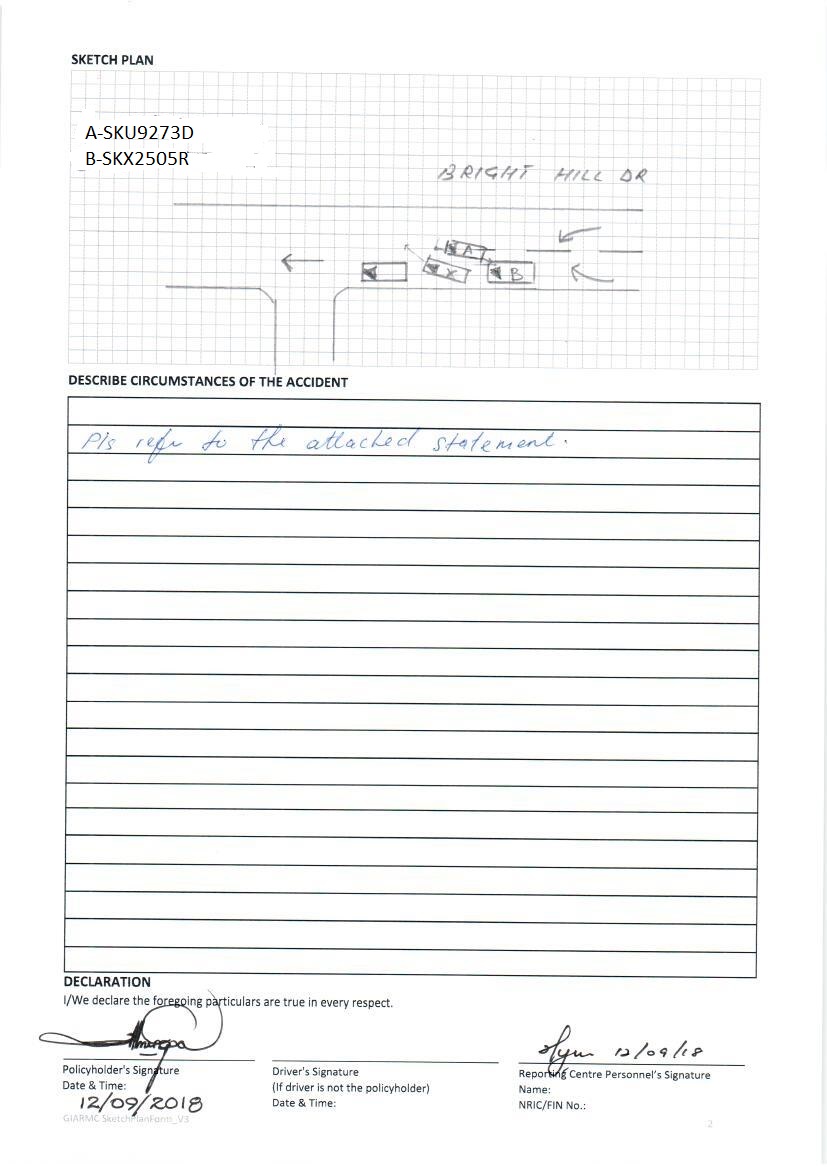 SKETCH PLAN
A-SKU9273D
B-SKX2505R
BRIGHT HILL DR
A
X
B
DESCRIBE CIRCUMSTANCES OF THE ACCIDENT
Pls refr to the attached statement.
DECLARATION
I/We declare the foregoing particulars are true in every respect.
12/09/18
Policyholder's Signature
Date & Time:
12/09/2018
Driver's Signature
(If driver is not the policyholder)
Date & Time:
Reporting Centre Personnel's Signature
Name:
NRIC/FIN No.:
GIARMC SketchPlanForm_V3
2